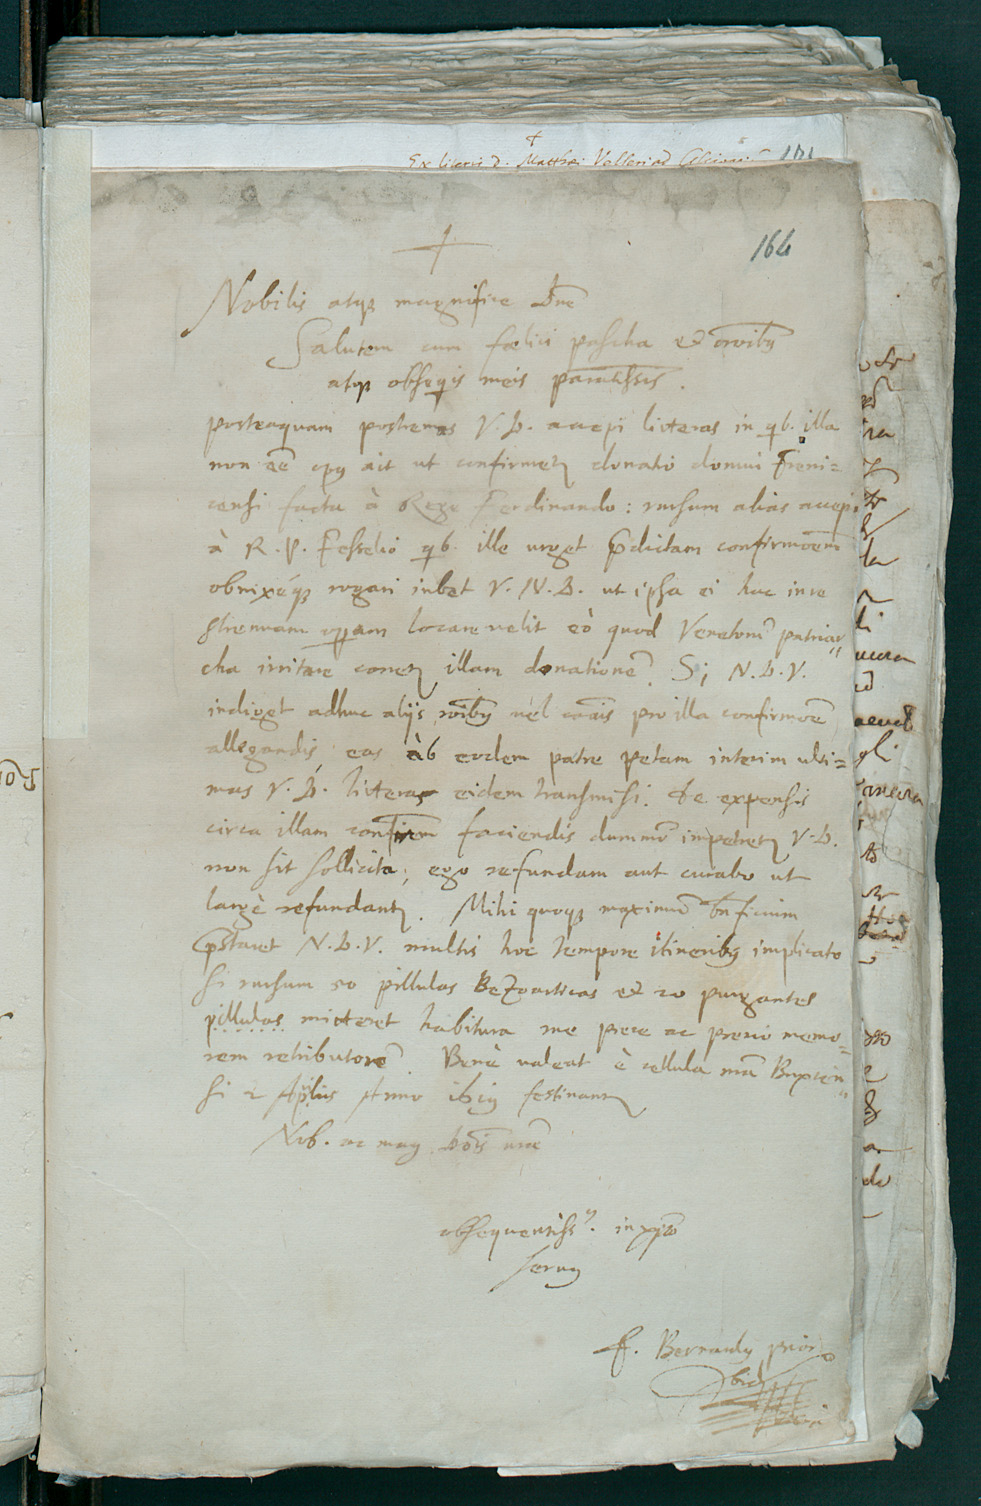 Ex literis D. Matthæi Velseri ad
164
Nobilis atq₃ magnifice Dñe
Salutem cum fœlici pascha et
atq₃ obseqijs meis paratissis.
posteaquam postremas V. D. accepi litteras in qb. illa
non eē opg ait ut confirmetr donatio domui Freni=
censi facta à Rege Ferdinando: rursum alias accepi
à R. P. Fesselio qb. ille urget pdictam confirmōem
obnixéq₃ rogari iubet V. N. D. ut ipsa ei hac in re
strenuam opam locare velit eò quod Venetorū patriar
cha irritare conetr illam donationē. Si N. D. V.
indiget adhuc alijs rōibg vel caūis pro illa confirmōe
allegandis, eas ab eodem patre petam interim ulti=
mas V. D. litteras eidem transmisi. De expensis
circa illam confirem faciendis dummō impetretr V. D.
non sit sollicita, ego refundam aut curabo ut
largè refundantr. Mihi quoq₃ maximū bnficium
pstaret N. D. V. multis hoc tempore itineribg implicato
si rursum 20 pillulas Bezoarticas et 20 purgantes
pillulas mitteret habitura me prece ac precio memo=
rem retributorē. Benè valeat è cellula mea Brixen
si 2 Aprilis Anno festinantr
Nob. ac mag. Dōis vrae
obsequentiss9. in xpō
serug
f. Bernardg prior